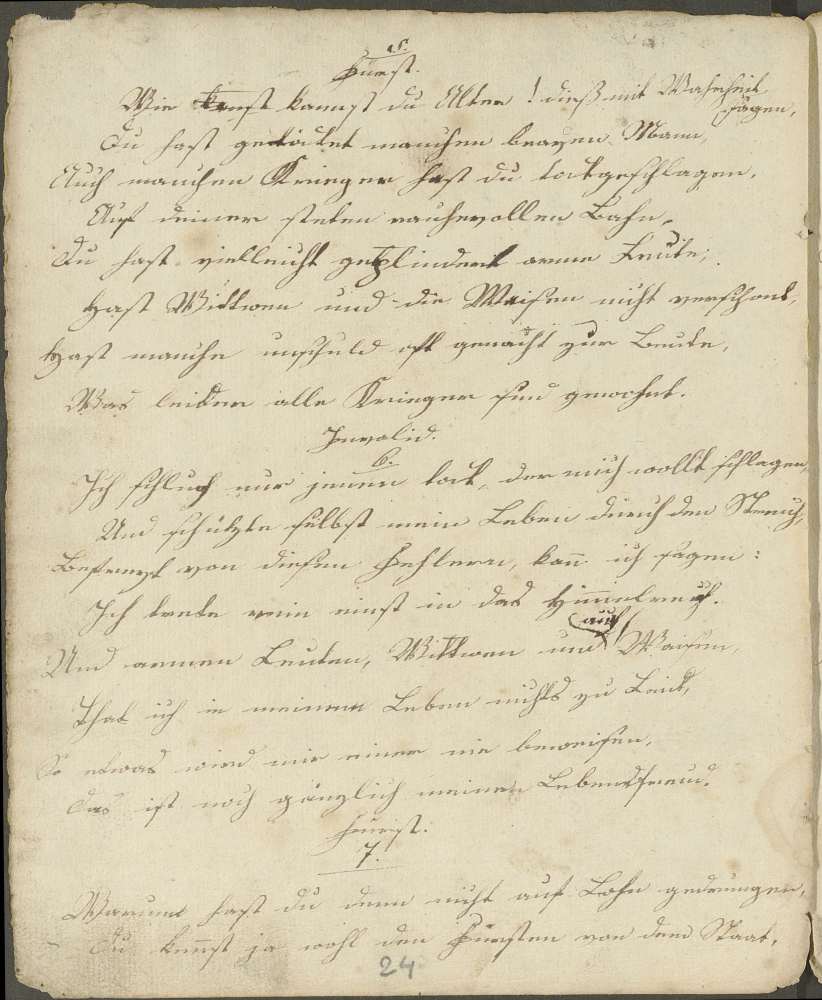 5.
Fürst.
Wie kannst du Alter! dieß mit Wahrheit
sagen,
Du hast getödtet manchen braven Mann,
Auch manchen Krieger hast du todtgeschlagen,
Auf deiner steten rauhevollen Bahn,
Du hast vielleicht geplündert arme Leute;
Hast Wittwen und die Waisen nicht verschont,
Hast manche unschuld oft gemacht zur Beute,
Was leider alle Krieger sind gewohnt.
Invalid.
6.
Ich schlug nur jenen todt, der mich wollt schlagen,
Und schützte selbst mein Leben durch den Streich,
Befreyt von diesen Fehlern, kann ich sagen:
Ich trete rein einst in das Himmelreich.
auch
Und armen Leuten, Wittwen und Waisen,
That ich in meinem Leben nichts zu Leid,
So etwas wird mir einer nie beweisen,
Das ist noch gänzlich meine Lebensfreud.
Fürst.
7.
Warum hast du denn nicht auf Lohn gedrungen,
Du kennst ja wohl den Fürsten von dem Staat,
24